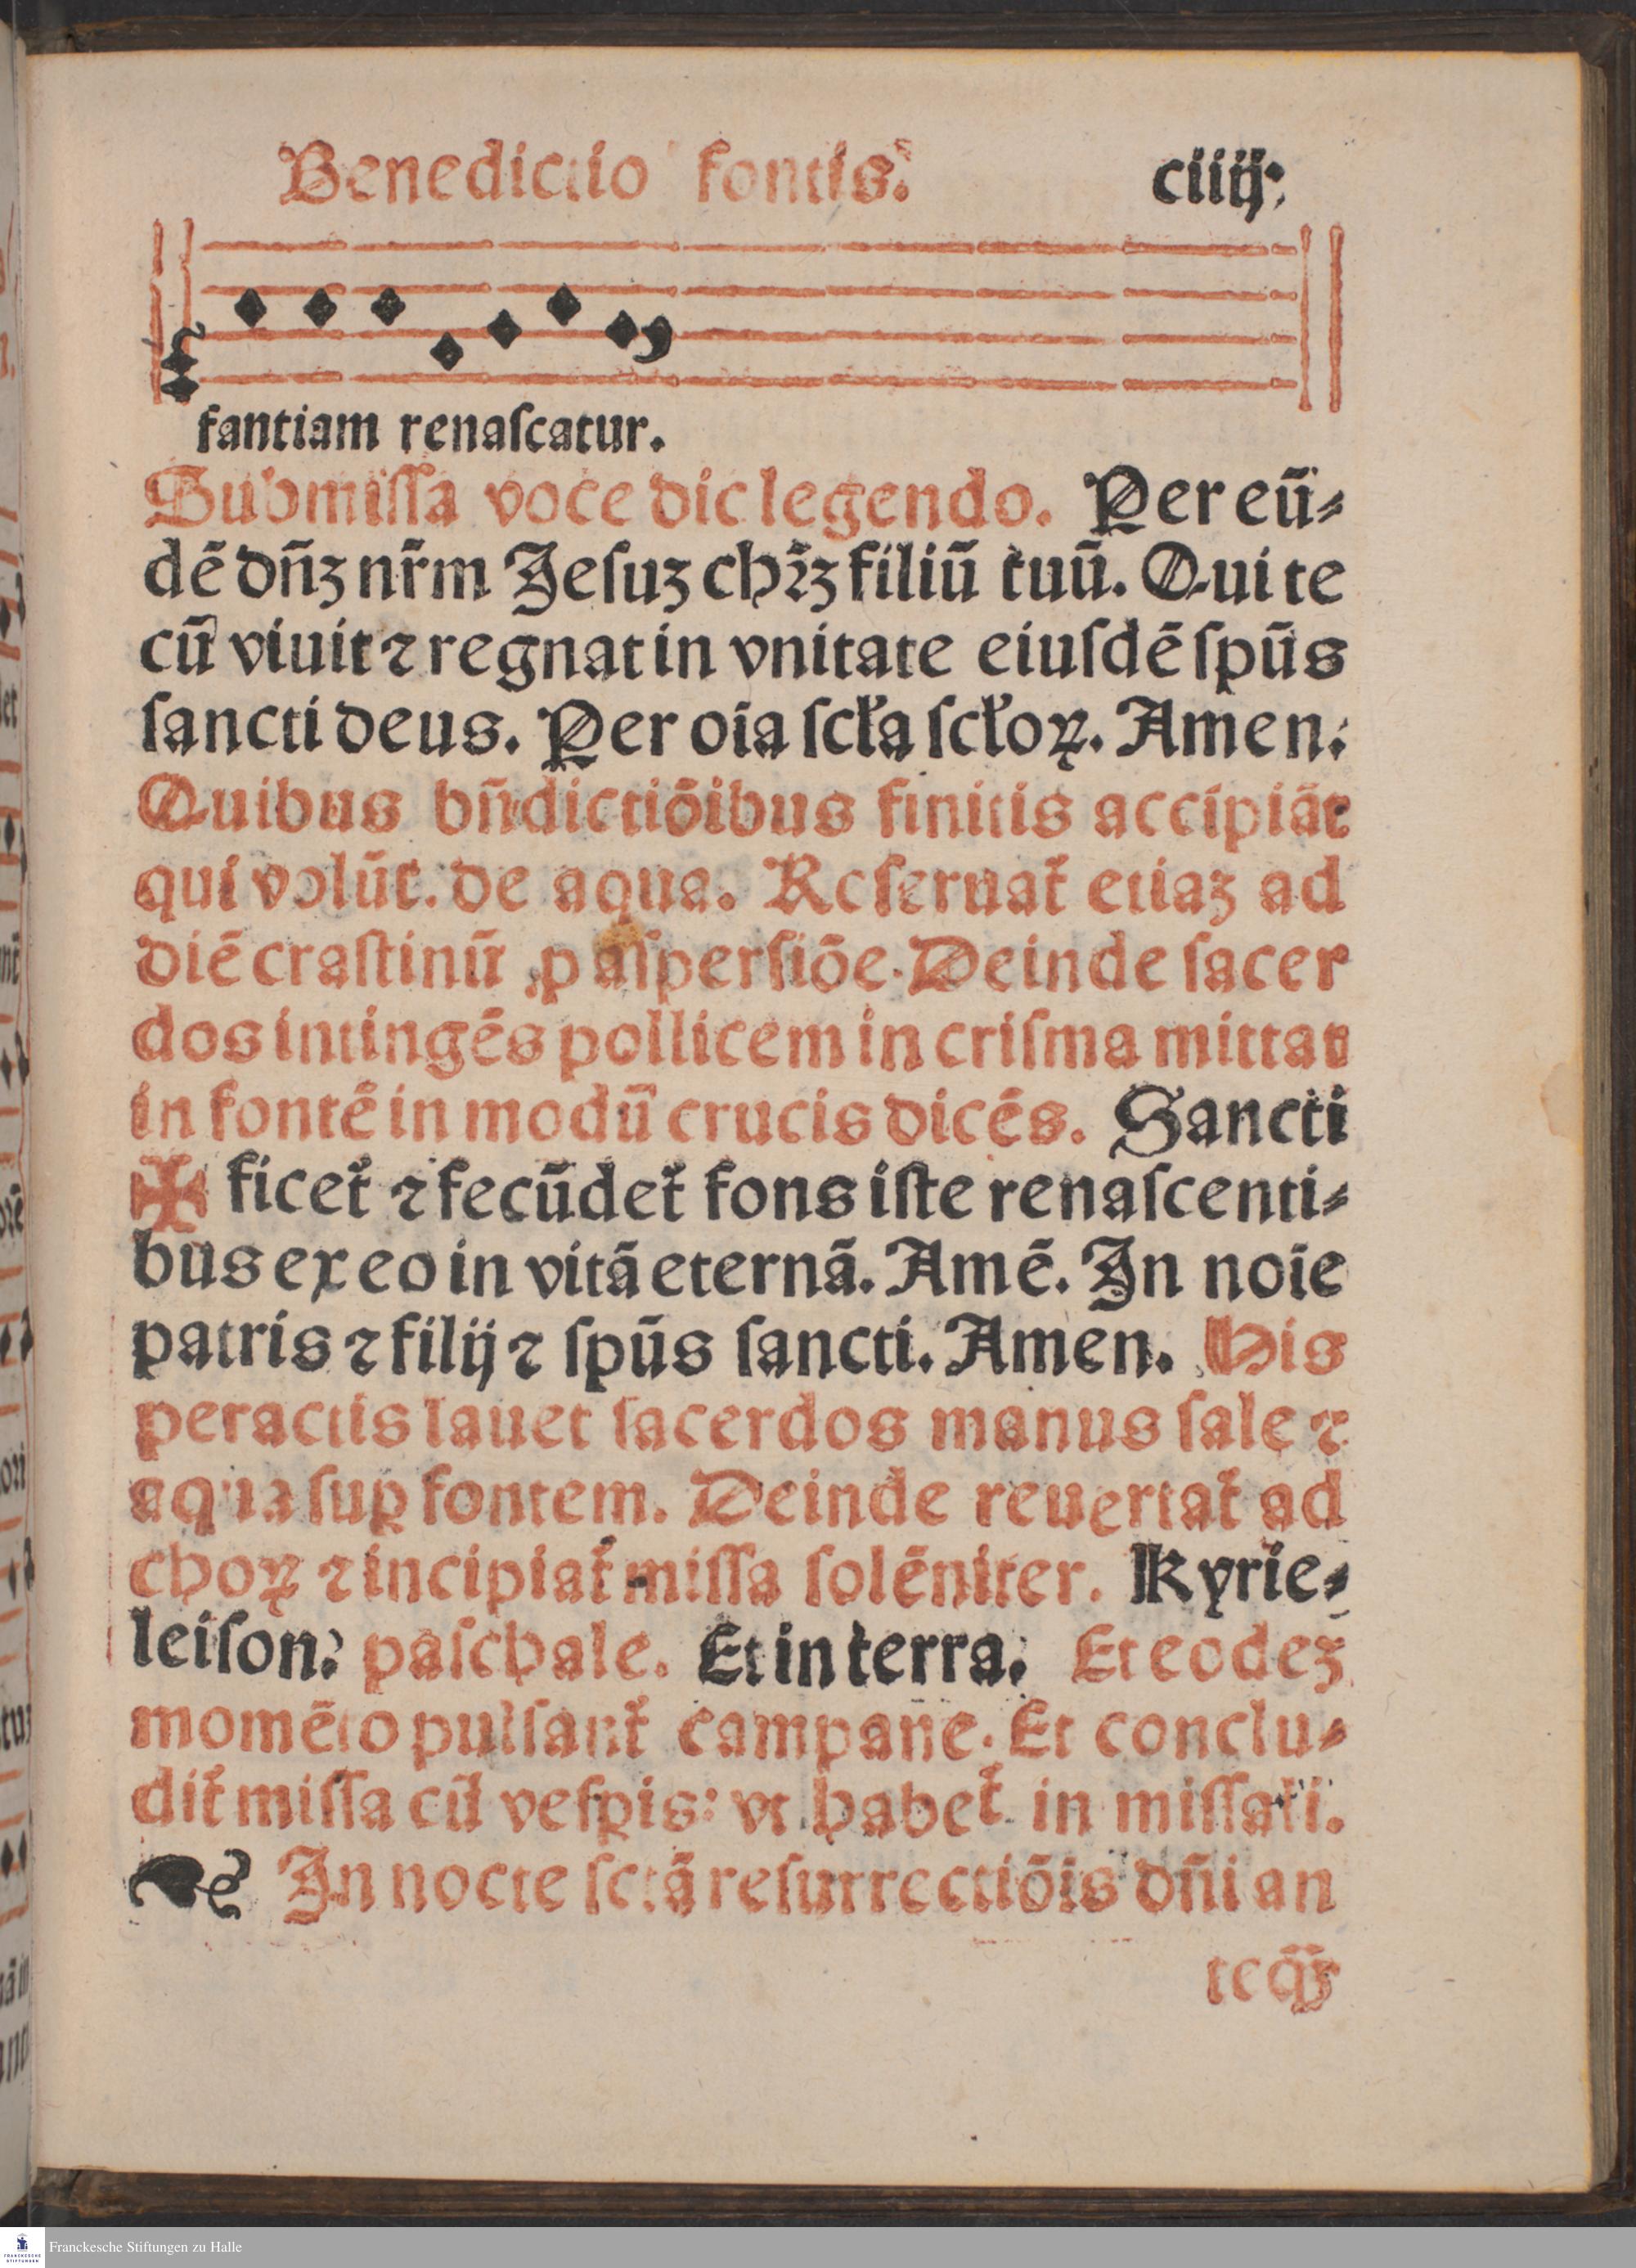 Benedictio fontis. ciiij.
fantiam renaſcatur.
Submiſſa voce dic legendo. Per eū⸗
dē dn̄ꝫ nr̄m Jeſuꝫ chꝛ̄ꝫ filiū tuū. Qui te
cū viuit ⁊ regnat in vnitate eiuſdē ſpūs
ſancti deus. Per oīa ſcl̓a ſcl̓oꝝ. Amen.
Quibus bn̄dictiōibus finitis accipiāt
qui volūt. de aqua. Reſeruat̓ etiaꝫ ad
diē craſtinū ꝓ aſperſiōe. Deinde ſacer
dos intingēs pollicem in criſma mittat
in fontē in modū crucis dicēs. Sancti
✠ ficet̓ ⁊ fecūdet̓ fons iſte renaſcenti⸗
bus ex eo in vitā eternā. Amē. In noīe
patris ⁊ filij ⁊ ſpūs ſancti. Amen. His
peractis lauet ſacerdos manus ſale ⁊
aqua ſuꝑ fontem. Deinde reuertat̓ ad
choꝝ ⁊ incipiat̓ miſſa ſolēniter. Kyrie⸗
leiſon. paſchale. Et in terra. Et eodeꝫ
momēto pulſant̓ campane. Et conclu⸗
dit̓ miſſa cū veſꝑis: vt habet̓ in miſſali.
❧ In nocte ſctā reſurrectiōis dn̄i an
Franckesche Stiftungen zu Halle